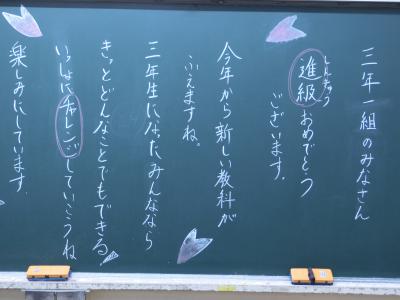 三年一組のみなさん
進級おめでとう
しんきゅう
ございます。
今年から新しい教科が
ふえますね。
三年生になったみんななら
きっとどんなことでもできる。
いっしょにチャレンジしていこうね
楽しみにしています。